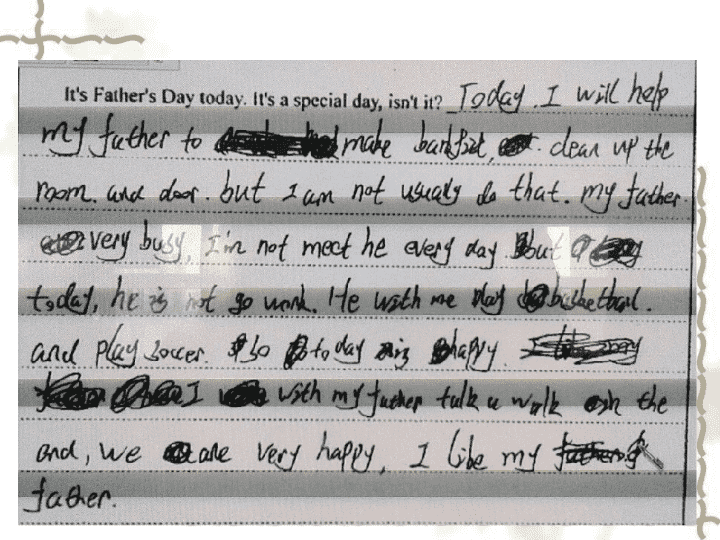 It's Father's Day today. It's a special day, isn't it? Today. I will help
my father to make barkfast, clean up the
room. and door. but I am not usually do that. my father.
very busy, I'm not meet he every day but
today, he is not go work. He with me play basketball.
and play soccer. So today is happy.
I with my father talk a walk on the
and, we are very happy, I like my
father.